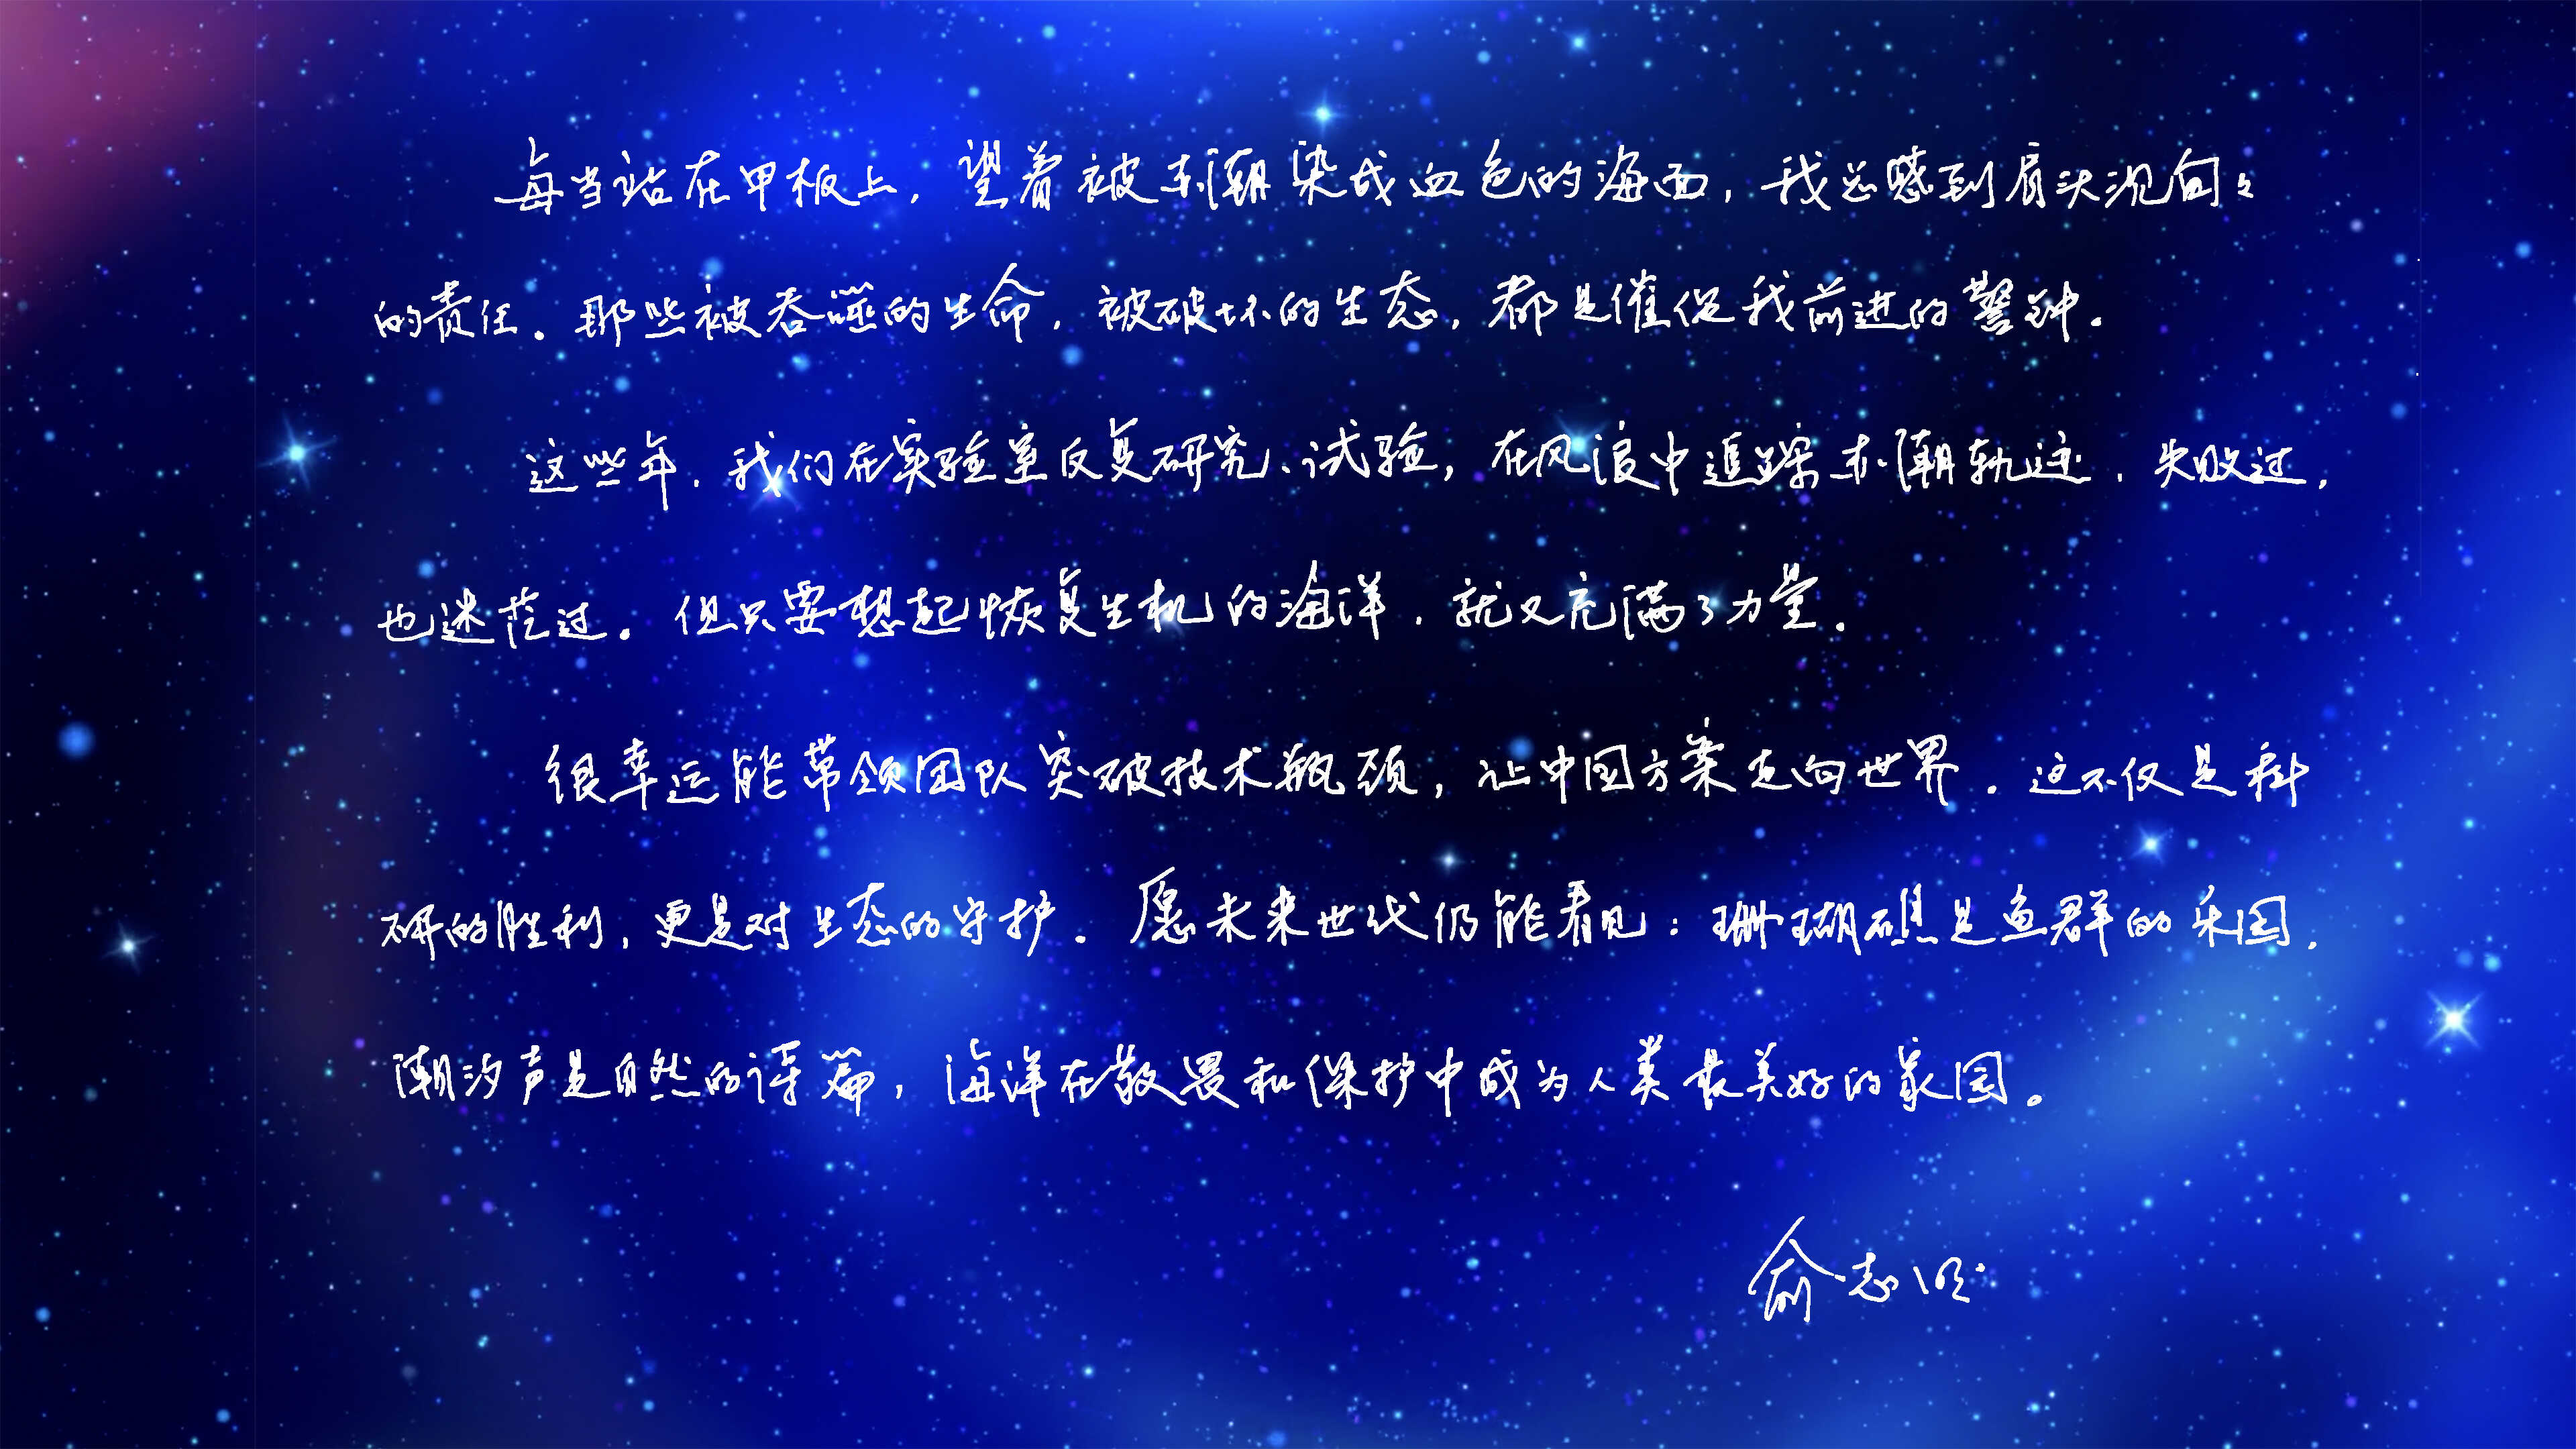 每当站在甲板上，望着被赤潮染成血色的海面，我总感到肩头沉甸々
的责任。那些被吞噬的生命，被破坏的生态，都是催促我前进的警钟。
这些年，我们在实验室反复研究、试验，在风浪中追踪赤潮轨迹，失败过，
也迷茫过。但只要想起恢复生机的海洋，就又充满了力量。
很幸运能带领团队突破技术瓶颈，让中国方案走向世界。这不仅是科
研的胜利，更是对生态的守护。愿未来世代仍能看见：珊瑚礁是鱼群的乐园，
潮汐声是自然的诗篇，海洋在敬畏和保护中成为人类最美好的家园。
俞志明